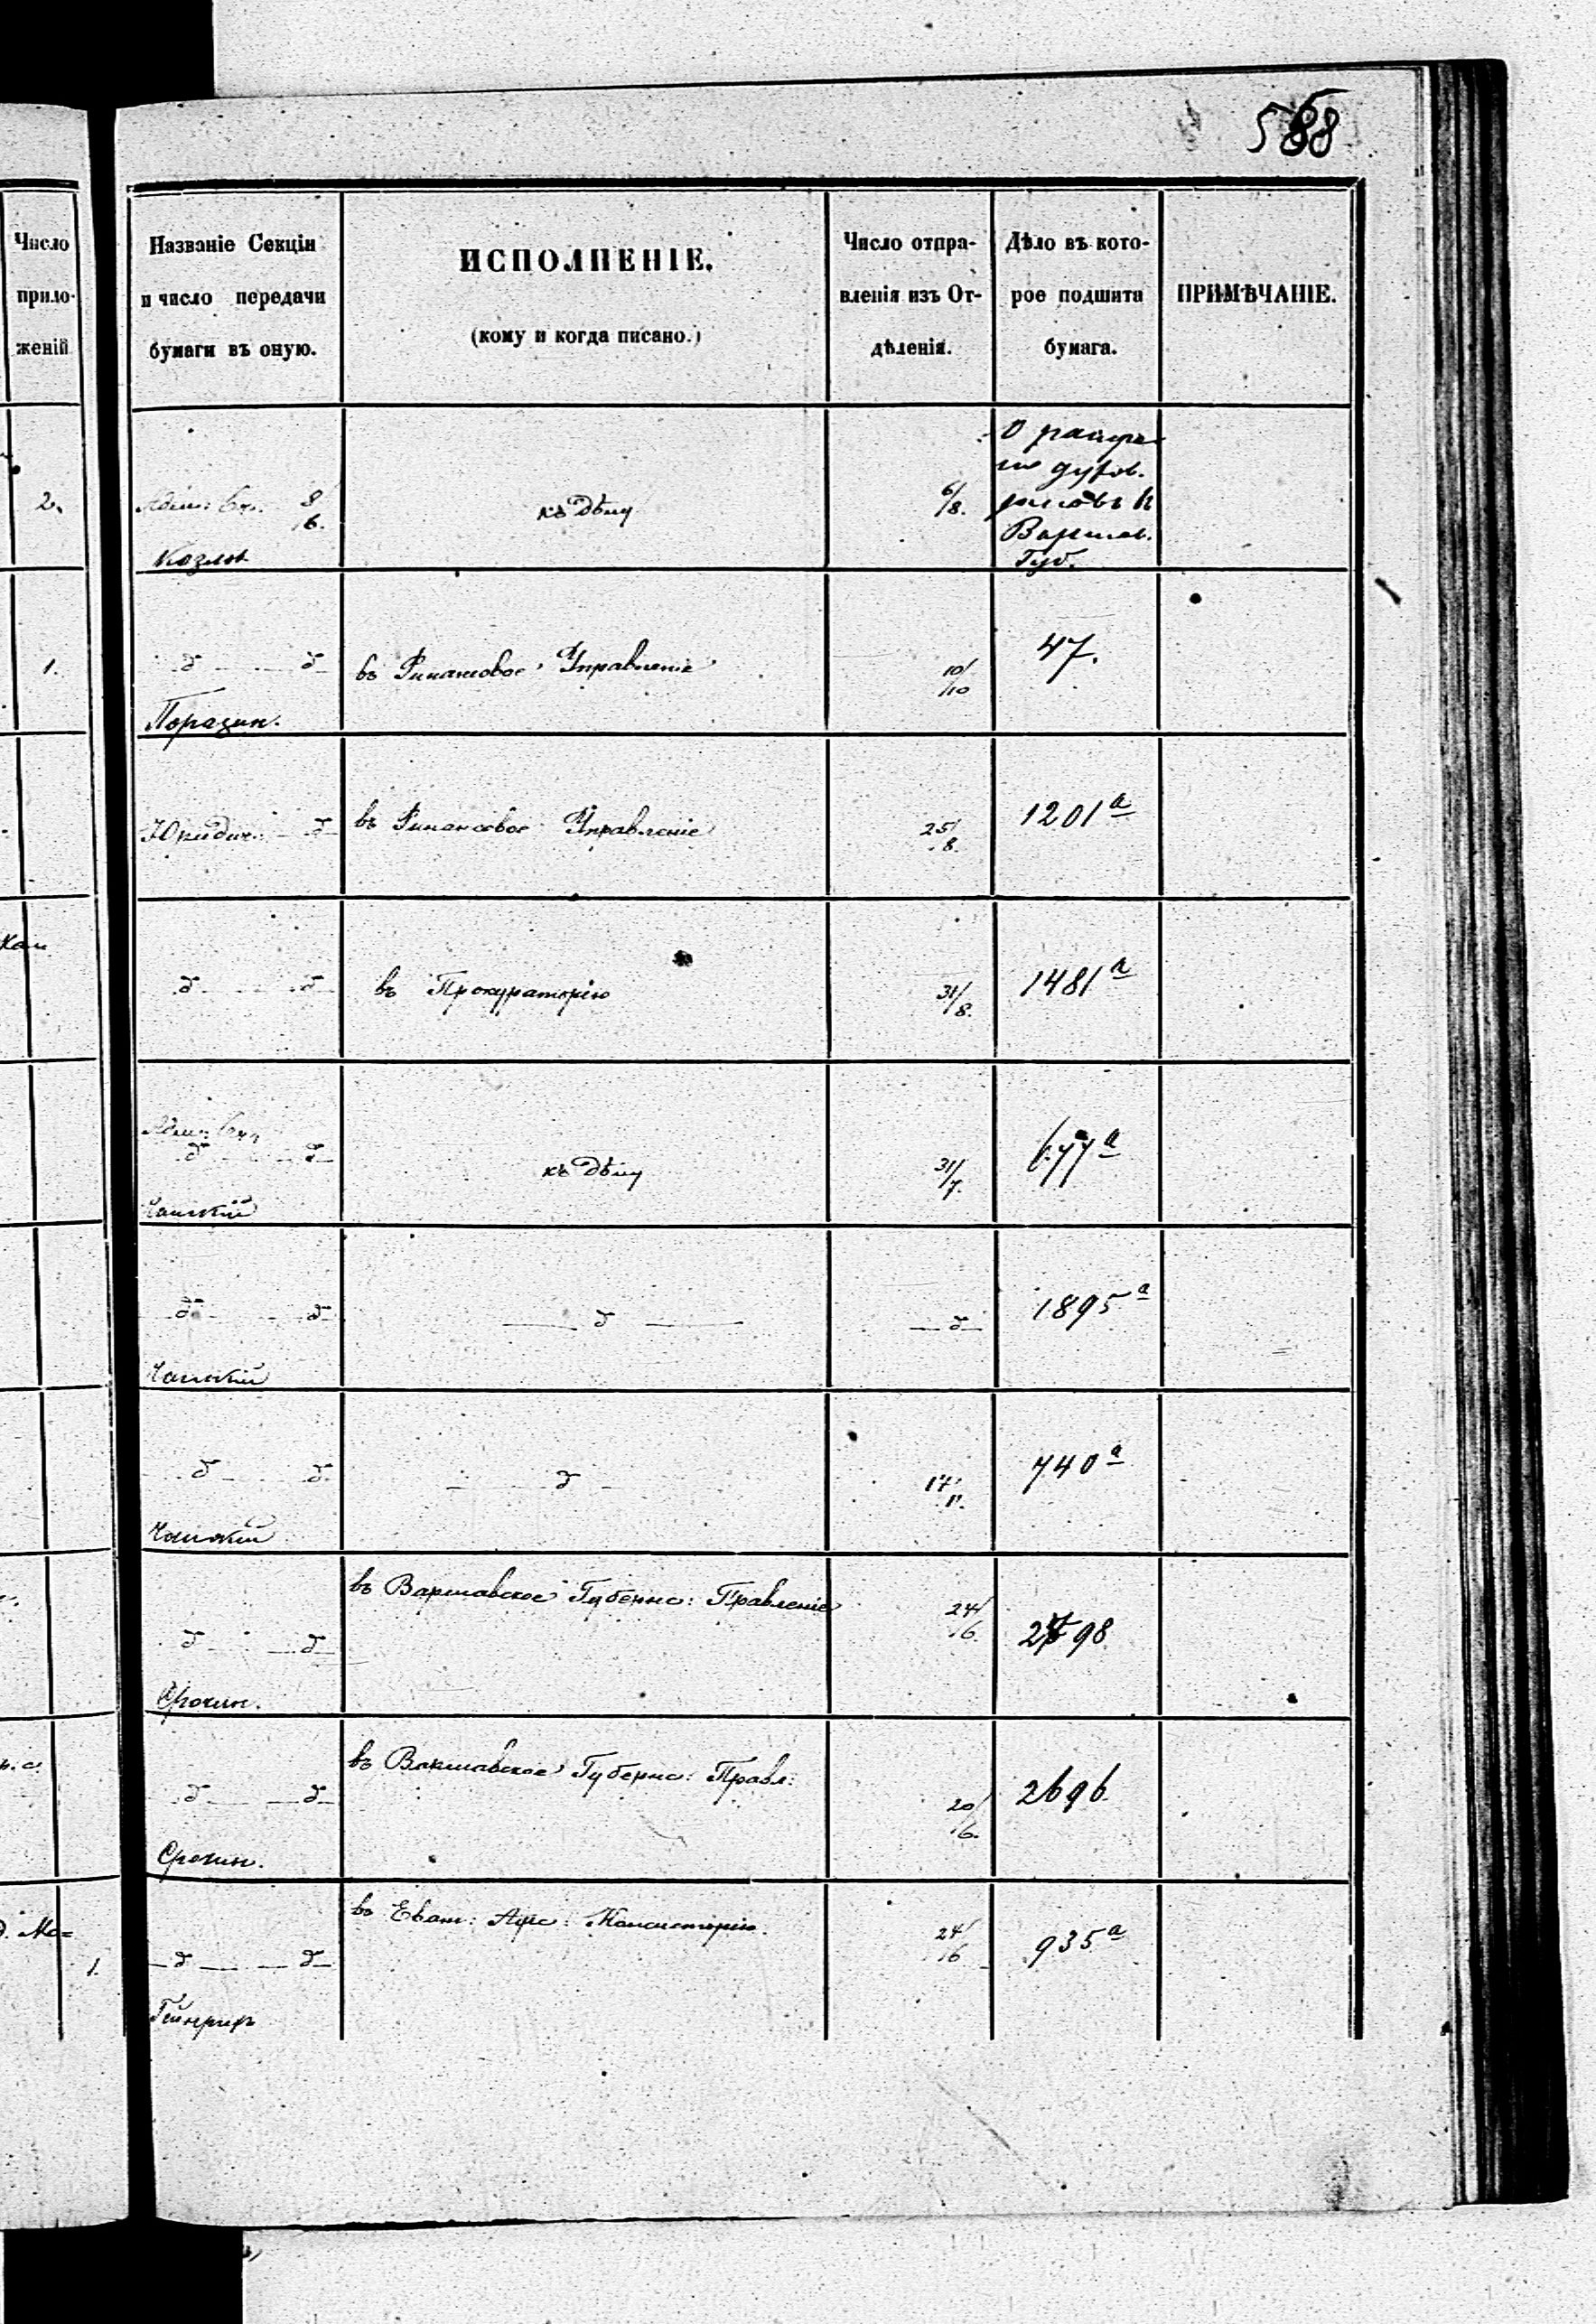 588
Число
прило-
женій
Названіе Секціи
и число передачи
бумаги въ оную.
ИСПОЛНЕНІЕ.
(кому и когда писано.)
Число отпра-
вленія изъ От-
дѣленія.
Дѣло въ кото-
рое подшита
бумага.
ПРИМѢЧАНІЕ.
2.
8/6.
Козлов
къ дѣлу
6/8.
О
Варшав.
Губ.
1.
д д
Порагин.
въ Финансовое Управленіе
10/10
47.
Юридич. д
въ Финансовое Управленіе
25/8.
1201а
Кам
д д
въ Прокураторію
31/8.
1481а
д д
Чайскій
къ дѣлу
31/7.
677а
д д
Чайскій
д
д
1895а
д д
Чайскій
д
17/11.
740а
д д
Срокин.
въ Варшавское Губернс: Правленіе
24/6.
98
д д
Срокин.
въ Варшавское Губернс: Правл:
20/6.
2696
Мо=
1.
д д
Гейнрих
въ Еванг: Аугс: Консисторію.
24/6
935а